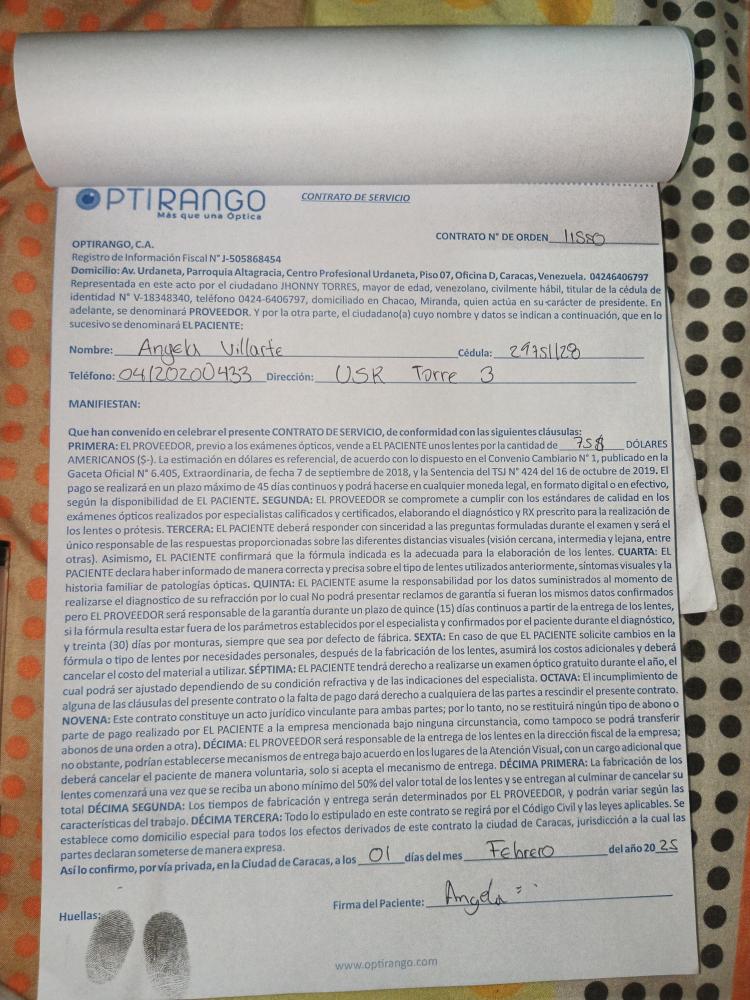 OPTIRANGO
Más que una Óptica
CONTRATO DE SERVICIO
CONTRATO N° DE ORDEN 11580
OPTIRANGO, C.A.
Registro de Información Fiscal N° J-505868454
Domicilio: Av. Urdaneta, Parroquia Altagracia, Centro Profesional Urdaneta, Piso 07, Oficina D, Caracas, Venezuela. 04246406797
Representada en este acto por el ciudadano JHONNY TORRES, mayor de edad, venezolano, civilmente hábil, titular de la cédula de
identidad N° V-18348340, teléfono 0424-6406797, domiciliado en Chacao, Miranda, quien actúa en su carácter de presidente. En
adelante, se denominará PROVEEDOR. Y por la otra parte, el ciudadano(a) cuyo nombre y datos se indican a continuación, que en lo
sucesivo se denominará EL PACIENTE:
Nombre: Angela Villarte Cédula: 29751128
Teléfono: 04120200433 Dirección: USR Torre 3
MANIFIESTAN:
Que han convenido en celebrar el presente CONTRATO DE SERVICIO, de conformidad con las siguientes cláusulas:
PRIMERA: EL PROVEEDOR, previo a los exámenes ópticos, vende a EL PACIENTE unos lentes por la cantidad de 75$ DÓLARES
AMERICANOS ($-). La estimación en dólares es referencial, de acuerdo con lo dispuesto en el Convenio Cambiario N° 1, publicado en la
Gaceta Oficial N° 6.405, Extraordinaria, de fecha 7 de septiembre de 2018, y la Sentencia del TSJ N° 424 del 16 de octubre de 2019. El
pago se realizará en un plazo máximo de 45 días continuos y podrá hacerse en cualquier moneda legal, en formato digital o en efectivo,
según la disponibilidad de EL PACIENTE. SEGUNDA: EL PROVEEDOR se compromete a cumplir con los estándares de calidad en los
exámenes ópticos realizados por especialistas calificados y certificados, elaborando el diagnóstico y RX prescrito para la realización de
los lentes o prótesis. TERCERA: EL PACIENTE deberá responder con sinceridad a las preguntas formuladas durante el examen y será el
único responsable de las respuestas proporcionadas sobre las diferentes distancias visuales (visión cercana, intermedia y lejana, entre
otras). Asimismo, EL PACIENTE confirmará que la fórmula indicada es la adecuada para la elaboración de los lentes. CUARTA: EL
PACIENTE declara haber informado de manera correcta y precisa sobre el tipo de lentes utilizados anteriormente, síntomas visuales y la
historia familiar de patologías ópticas. QUINTA: EL PACIENTE asume la responsabilidad por los datos suministrados al momento de
realizarse el diagnostico de su refracción por lo cual No podrá presentar reclamos de garantía si fueran los mismos datos confirmados
pero EL PROVEEDOR será responsable de la garantía durante un plazo de quince (15) días continuos a partir de la entrega de los lentes,
si la fórmula resulta estar fuera de los parámetros establecidos por el especialista y confirmados por el paciente durante el diagnóstico,
y treinta (30) días por monturas, siempre que sea por defecto de fábrica. SEXTA: En caso de que EL PACIENTE solicite cambios en la
fórmula o tipo de lentes por necesidades personales, después de la fabricación de los lentes, asumirá los costos adicionales y deberá
cancelar el costo del material a utilizar. SÉPTIMA: EL PACIENTE tendrá derecho a realizarse un examen óptico gratuito durante el año, el
cual podrá ser ajustado dependiendo de su condición refractiva y de las indicaciones del especialista. OCTAVA: El incumplimiento de
alguna de las cláusulas del presente contrato o la falta de pago dará derecho a cualquiera de las partes a rescindir el presente contrato.
NOVENA: Este contrato constituye un acto jurídico vinculante para ambas partes; por lo tanto, no se restituirá ningún tipo de abono o
parte de pago realizado por EL PACIENTE a la empresa mencionada bajo ninguna circunstancia, como tampoco se podrá transferir
abonos de una orden a otra). DÉCIMA: EL PROVEEDOR será responsable de la entrega de los lentes en la dirección fiscal de la empresa;
no obstante, podrían establecerse mecanismos de entrega bajo acuerdo en los lugares de la Atención Visual, con un cargo adicional que
deberá cancelar el paciente de manera voluntaria, solo si acepta el mecanismo de entrega. DÉCIMA PRIMERA: La fabricación de los
lentes comenzará una vez que se reciba un abono mínimo del 50% del valor total de los lentes y se entregan al culminar de cancelar su
total DÉCIMA SEGUNDA: Los tiempos de fabricación y entrega serán determinados por EL PROVEEDOR, y podrán variar según las
características del trabajo. DÉCIMA TERCERA: Todo lo estipulado en este contrato se regirá por el Código Civil y las leyes aplicables. Se
establece como domicilio especial para todos los efectos derivados de este contrato la ciudad de Caracas, jurisdicción a la cual las
partes declaran someterse de manera expresa.
Así lo confirmo, por vía privada, en la Ciudad de Caracas, a los 01 días del mes Febrero del año 2025
Firma del Paciente: Angela
Huellas:
www.optirango.com